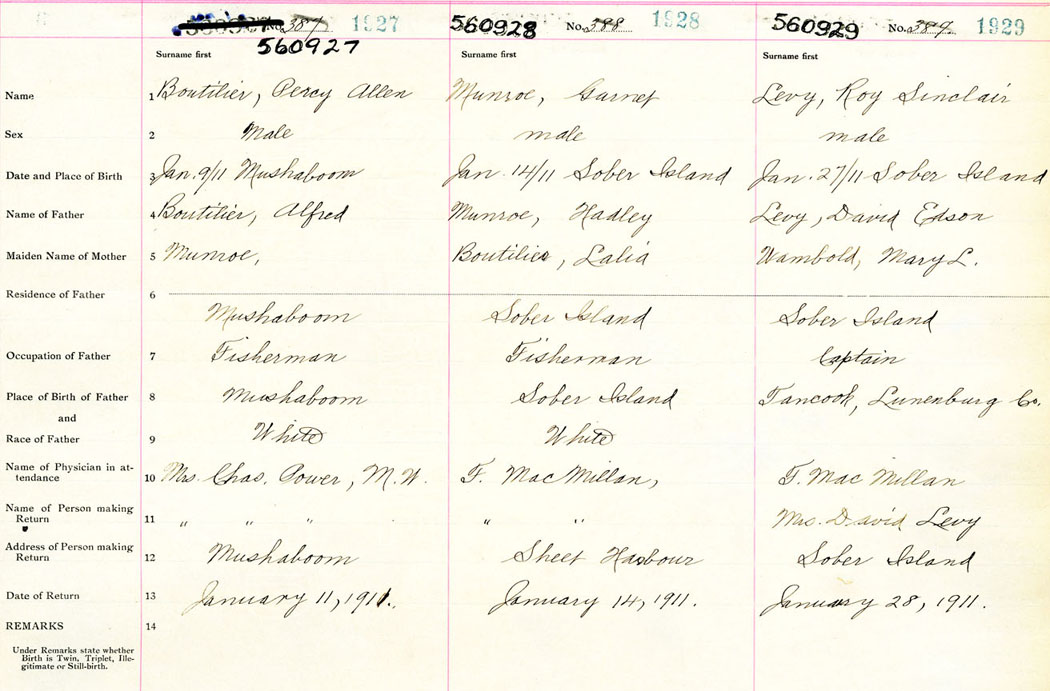 560927 No. 387 1927 560928 No. 388 1928 560929 No. 389 1929
560927
Surname first Surname first Surname first
Name 1 Boutilier, Percy Allen Munroe, Garnet Levy, Roy Sinclair
Sex 2 Male male male
Date and Place of Birth 3 Jan. 9/11 Mushaboom Jan. 14/11 Sober Island Jan. 27/11 Sober Island
Name of Father 4 Boutilier, Alfred Munroe, Hadley Levy, David Edson
Maiden Name of Mother 5 Munroe, Boutilier, Lalia Wambold, Mary L.
Residence of Father 6
Mushaboom Sober Island Sober Island
Occupation of Father 7 Fisherman Fisherman Captain
Place of Birth of Father 8 Mushaboom Sober Island Tancook, Lunenburg Co.
and
Race of Father 9 White White
Name of Physician in at-
tendance 10 Mrs. Chas. Power, M.W. F. MacMillan, F. MacMillan
Name of Person making
Return 11 " " " " " Mrs. David Levy
Address of Person making
Return 12 Mushaboom Sheet Harbour Sober Island
Date of Return 13 January 11, 1911. January 14, 1911. January 28, 1911.
REMARKS 14
Under Remarks state whether
Birth is Twin, Triplet, Ille-
gitimate or Still-birth.